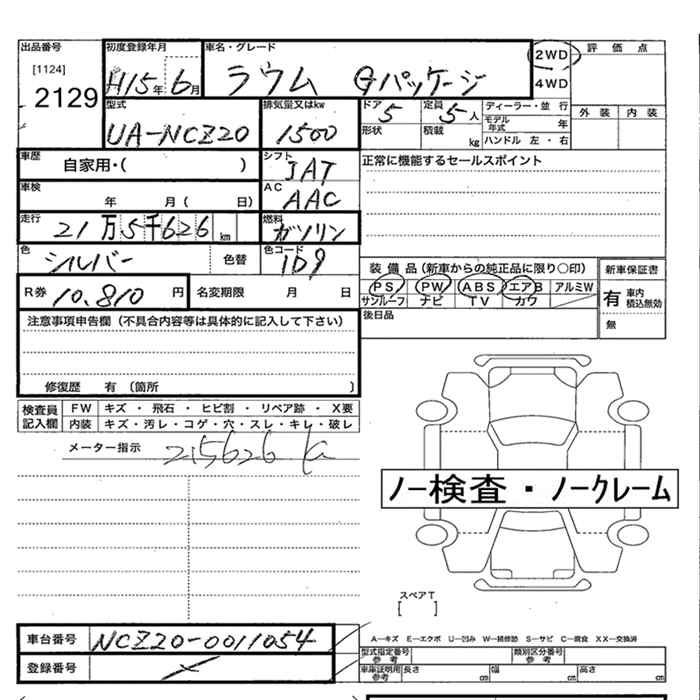 出品番号 初度登録年月 車名・グレード 2WD 評価点
[1124] H15年 6月 ラウム Gパッケージ 4WD
2129 外装 内装
型式 排気量又はkw ドア 定員 ディーラー・並行
UA-NCZ20 1500 5 5人 モデル年式 年
形状 積載 kg ハンドル 左・右
車歴 自家用・( ) シフト IAT 正常に機能するセールスポイント
車検 年 月( 日) AC AAC
走行 21万5千626km 燃料 ガソリン
色 シルバー 色替 色コード 1D9 装備品(新車からの純正品に限り〇印) 新車保証書
PS PW ABS エアB アルミW 有 車内積込無効
R券 10.810円 名変期限 月 日 サンルーフ ナビ TV カワ 無
後日品
注意事項申告欄(不具合内容等は具体的に記入して下さい)
修復歴 有 (箇所 )
検査員記入欄 FW キズ・飛石・ヒビ割・リペア跡・X要
内装 キズ・汚レ・コゲ・穴・スレ・キレ・破レ
メーター指示 215626
ノー検査・ノークレーム
スペアT
[ ]
車台番号 NCZ20-0011054 A―キズ E―エクボ U―凹み W―補修跡 S―サビ C―腐食 XX―交換済
型式指定番号 参考 類別区分番号 参考
登録番号 車庫証明用 参考 長さ cm 幅 cm 高さ cm